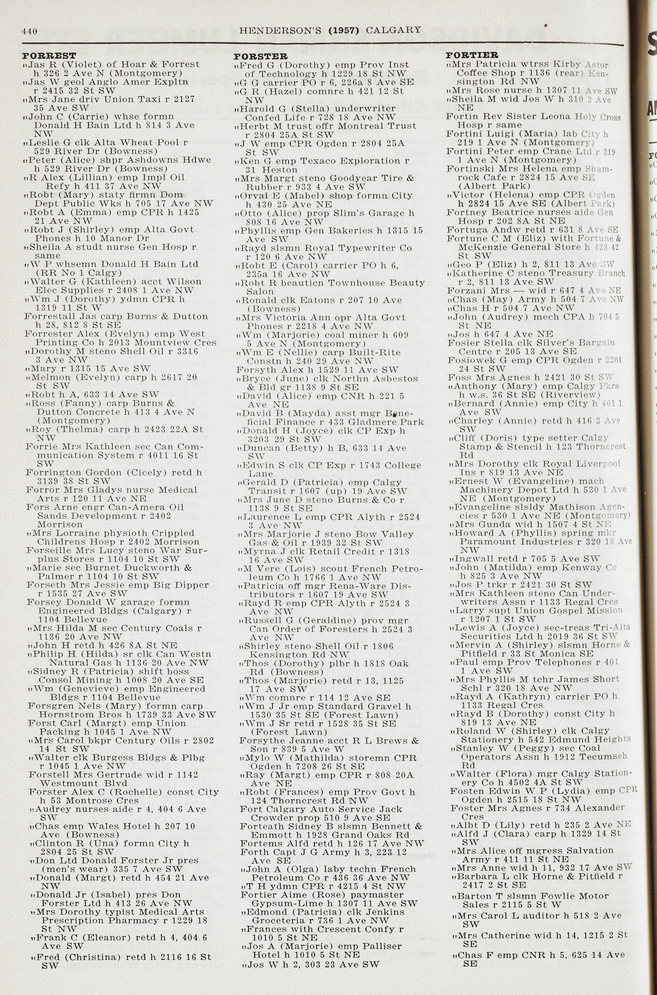 440
HENDERSON'S (1957) CALGARY
FORREST
"Jas R (Violet) of Hoar & Forrest
h 326 2 Ave N (Montgomery)
"Jas W geol Anglo Amer Expltn
r 2415 32 St SW
"Mrs Jane driv Union Taxi r 2127
35 Ave SW
"John C (Carrie) whse formn
Donald H Bain Ltd h 814 3 Ave
NW
"Leslie G clk Alta Wheat Pool r
529 River Dr (Bowness)
"Peter (Alice) shpr Ashdowns Hdwe
h 529 River Dr (Bowness)
"R Alex (Lillian) emp Impl Oil
Refy h 411 37 Ave NW
"Robt (Mary) staty firmn Dom
Dept Public Wks h 705 17 Ave NW
"Robt A (Emma) emp CPR h 1425
21 Ave NW
"Robt J (Shirley) emp Alta Govt
Phones h 10 Manor Dr
"Sheila A studt nurse Gen Hosp r
same
"W P whsemn Donald H Bain Ltd
(RR No 1 Calgy)
"Walter G (Kathleen) acct Wilson
Elec Supplies r 2408 1 Ave NW
"Wm J (Dorothy) ydmn CPR h
1319 11 St W
Forrestall Jas carp Burns & Dutton
h 28, 812 8 St SE
Forrester Alex (Evelyn) emp West
Printing Co h 2013 Mountview Cres
"Dorothy M steno Shell Oil r 3316
3 Ave NW
"Mary r 1315 15 Ave SW
"Melmon (Evelyn) carp h 2617 20
St SW
"Robt h A, 633 14 Ave SW
"Ross (Fanny) carp Burns &
Dutton Concrete h 413 4 Ave N
(Montgomery)
"Roy (Thelma) carp h 2423 22A St
NW
Forrie Mrs Kathleen sec Can Com-
munication System r 4011 16 St
SW
Forrington Gordon (Cicely) retd h
3139 38 St SW
Forror Mrs Gladys nurse Medical
Arts r 120 11 Ave NE
Fors Arne engr Can-Amera Oil
Sands Development r 2402
Morrison
"Mrs Lorraine physioth Crippled
Childrens Hosp r 2402 Morrison
Forseille Mrs Lucy steno War Sur-
plus Stores r 1104 10 St SW
"Marie sec Burnet Duckworth &
Palmer r 1104 10 St SW
Forseth Mrs Jessie emp Big Dipper
r 1535 27 Ave SW
Forsey Donald W garage formn
Engineered Bldgs (Calgary) r
1104 Bellevue
"Mrs Hilda M sec Century Coals r
1136 20 Ave NW
"John H retd h 426 8A St NE
"Philip H (Hilda) sr clk Can Westn
Natural Gas h 1136 20 Ave NW
"Sidney R (Patricia) shift boss
Consol Mining h 1008 20 Ave SE
"Wm (Genevieve) emp Engineered
Bldgs r 1104 Bellevue
Forsgren Nels (Mary) formn carp
Hornstrom Bros h 1739 33 Ave SW
Forst Carl (Margt) emp Union
Packing h 1045 1 Ave NW
"Mrs Carol bkpr Century Oils r 2802
14 St SW
"Walter clk Burgess Bldgs & Plbg
r 1045 1 Ave NW
Forstell Mrs Gertrude wid r 1142
Westmount Blvd
Forster Alex C (Rochelle) const City
h 53 Montrose Cres
"Audrey nurses aide r 4, 404 6 Ave
SW
"Chas emp Wales Hotel h 207 10
Ave (Bowness)
"Clinton R (Una) formn City h
2804 25 St SW
"Don Ltd Donald Forster Jr pres
(men's wear) 335 7 Ave SW
"Donald (Margt) retd h 454 21 Ave
NW
"Donald Jr (Isabel) pres Don
Forster Ltd h 413 26 Ave NW
"Mrs Dorothy typist Medical Arts
Prescription Pharmacy r 1229 18
St NW
"Frank C (Eleanor) retd h 4, 404 6
Ave SW
"Fred (Christina) retd h 2116 16 St
SW
FORSTER
"Fred G (Dorothy) emp Prov Inst
of Technology h 1229 18 St NW
"G G carrier PO r 6, 226a 8 Ave SE
"G R (Hazel) comnre h 421 12 St
NW
"Harold G (Stella) underwriter
Confed Life r 728 18 Ave NW
"Herbt M trust offr Montreal Trust
r 2804 25A St SW
"J W emp CPR Ogden r 2804 25A
St SW
"Ken G emp Texaco Exploration r
31 Heston
"Mrs Margt steno Goodyear Tire &
Rubber r 933 4 Ave SW
"Orval E (Mabel) shop formn City
h 430 25 Ave NE
"Otto (Alice) prop Slim's Garage h
808 16 Ave NW
"Phyllis emp Gen Bakeries h 1315 15
Ave SW
"Rayd slsmn Royal Typewriter Co
r 120 6 Ave NW
"Robt E (Carol) carrier PO h 6,
235a 16 Ave NW
"Robt R beauticn Townhouse Beauty
Salon
"Ronald clk Eatons r 207 10 Ave
(Bowness)
"Mrs Victoria Ann opr Alta Govt
Phones r 2218 4 Ave NW
"Wm (Marjorie) coal miner h 609
5 Ave N (Montgomery)
"Wm E (Nellie) carp Built-Rite
Constn h 240 29 Ave NW
Forsyth Alex h 1529 11 Ave SW
"Bryce (June) clk Northn Asbestos
& Bld gr 1138 9 St SE
"David (Alice) emp CNR h 221 5
Ave NE
"David B (Mayda) asst mgr Bene-
ficial Finance r 433 Gladmere Park
"Donald H (Joyce) clk CP Exp h
3203 29 St SW
"Duncan (Betty) h B, 633 14 Ave
SW
"Edwin S clk CP Exp r 1743 College
Lane
"Gerald D (Patricia) emp Calgy
Transit r 1607 (up) 19 Ave SW
"Mrs June D steno Burns & Co r
1138 9 St SE
"Laurence L emp CPR Alyth r 2524
3 Ave NW
"Mrs Marjorie J steno Bow Valley
Gas & Oil r 1939 32 St SW
"Myrna J clk Retail Credit r 1318
16 Ave SW
"M Vere (Lois) scout French Petro-
leum Co h 1766 1 Ave NW
"Patricia off mgr Rena-Ware Dis-
tributors r 1607 19 Ave SW
"Rayd R emp CPR Alyth r 2524 3
Ave NW
"Russell G (Geraldine) prov mgr
Can Order of Foresters h 2524 3
Ave NW
"Shirley steno Shell Oil r 1806
Kensington Rd NW
"Thos (Dorothy) plbr h 1818 Oak
Rd (Bowness)
"Thos (Marjorie) retd r 13, 1125
17 Ave SW
"Wm comnre r 114 12 Ave SE
"Wm J Jr emp Standard Gravel h
1530 35 St SE (Forest Lawn)
"Wm J Sr retd r 1528 35 St SE
(Forest Lawn)
Forsythe Jeanne acct R L Brews &
Son r 839 5 Ave W
"Mylo W (Mathilda) storemn CPR
Ogden h 7208 26 St SE
"Ray (Margt) emp CPR r 808 20A
Ave NE
"Robt (Frances) emp Prov Govt h
124 Thorncrest Rd NW
Fort Calgary Auto Service Jack
Crowder prop 510 9 Ave SE
Forteath Sidney B slsmn Bennett &
Emmott h 1928 Grand Oaks Rd
Fortems Alfd retd h 126 17 Ave NW
Forth Capt J G Army h 3, 223 12
Ave SE
"John A (Olga) laby techn French
Petroleum Co r 436 36 Ave NW
"T H ydmn CPR r 4215 4 St NW
Fortier Aime (Rose) paymaster
Gypsum-Lime h 1307 11 Ave SW
"Edmond (Patricia) clk Jenkins
Groceteria r 736 1 Ave NW
"Frances with Crescent Confy r
1010 5 St NE
"Jos A (Marjorie) emp Palliser
Hotel h 1010 5 St NE
"Jos W h 2, 303 23 Ave SW
FORTIER
"Mrs Patricia wtrss Kirby Astor
Coffee Shop r 1136 (rear) Ken-
sington Rd NW
"Mrs Rose nurse h 1307 11 Ave SW
"Sheila M wid Jos W h 310 2 Ave
NE
Fortin Rev Sister Leona Holy Cross
Hosp r same
Fortini Luigi (Maria) lab City h
219 1 Ave N (Montgomery)
Fortini Peter emp Crane Ltd r 219
1 Ave N (Montgomery)
Fortinski Mrs Helena emp Sham-
rock Cafe r 2824 15 Ave SE
(Albert Park)
"Victor (Helena) emp CPR Ogden
h 2824 15 Ave SE (Albert Park)
Fortney Beatrice nurses aide Gen
Hosp r 202 8A St NE
Fortuga Andw retd r 631 8 Ave SE
Fortune C M (Eliz) with Fortune &
McKenzie General Store h 428 42
St SW
"Geo P (Eliz) h 2, 811 13 Ave SW
"Katherine C steno Treasury Branch
r 2, 811 13 Ave SW
Forzani Mrs — wid r 647 4 Ave NE
"Chas (May) Army h 504 7 Ave NW
"Chas H r 504 7 Ave NW
"John (Audrey) mech CPA h 704 5
St NE
"Jos h 647 4 Ave NE
Fosier Stella clk Silver's Bargain
Centre r 205 13 Ave SE
Fosiowek G emp CPR Ogden r 2201
24 St SW
Foss Mrs Agnes h 2421 30 St SW
"Anthony (Mary) emp Calgy Pkrs
h w.s. 36 St SE (Riverview)
"Bernard (Annie) emp City h 401 1
Ave SW
"Charley (Annie) retd h 416 2 Ave
SW
"Cliff (Doris) type setter Calgy
Stamp & Stencil h 123 Thorncrest
Rd
"Mrs Dorothy clk Royal Liverpool
Ins r 819 13 Ave NE
"Ernest W (Evangeline) mach
Machinery Depot Ltd h 530 1 Ave
NE (Montgomery)
"Evangeline slsldy Mathison Agen-
cies r 530 1 Ave NE (Montgomery)
"Mrs Gunda wid h 1507 4 St NE
"Howard A (Phyllis) spring mkr
Paramount Industries r 320 18 Ave
NW
"Ingwall retd r 705 5 Ave SW
"John (Matilda) emp Kenway Co
h 825 3 Ave NW
"Jos P trkr r 2421 30 St SW
"Mrs Kathleen steno Can Under-
writers Assn r 1133 Regal Cres
"Larry supt Union Gospel Mission
r 1207 1 St SW
"Lewis A (Joyce) sec-treas Tri-Alta
Securities Ltd h 2019 36 St SW
"Mervin A (Shirley) slsmn Horne &
Pitfield r 33 St Monica SE
"Paul emp Prov Telephones r 401
1 Ave SW
"Mrs Phyllis M tchr James Short
Schl r 320 18 Ave NW
"Rayd A (Kathryn) carrier PO h
1133 Regal Cres
"Rayd B (Dorothy) const City h
819 13 Ave NE
"Roland W (Shirley) clk Calgy
Stationery h 542 Edmund Heights
"Stanley W (Peggy) sec Coal
Operators Assn h 1912 Tecumseh
Rd
"Walter (Flora) mgr Calgy Station-
ery Co h 4502 4A St SW
Fosten Edwin W P (Lydia) emp CPR
Ogden h 2515 18 St NW
Foster Mrs Agnes r 734 Alexander
Cres
"Albt D (Lily) retd h 235 2 Ave NE
"Alfd J (Clara) carp h 1329 14 St
SW
"Mrs Alice off mgress Salvation
Army r 411 11 St NE
"Mrs Anne wid h 11, 932 17 Ave SW
"Barbara L clk Horne & Pitfield r
2417 2 St SE
"Barton T slsmn Fowlie Motor
Sales r 2115 5 St W
"Mrs Carol L auditor h 518 2 Ave
SW
"Mrs Catherine wid h 14, 1215 2 St
SE
"Chas F emp CNR h 5, 625 14 Ave
SE